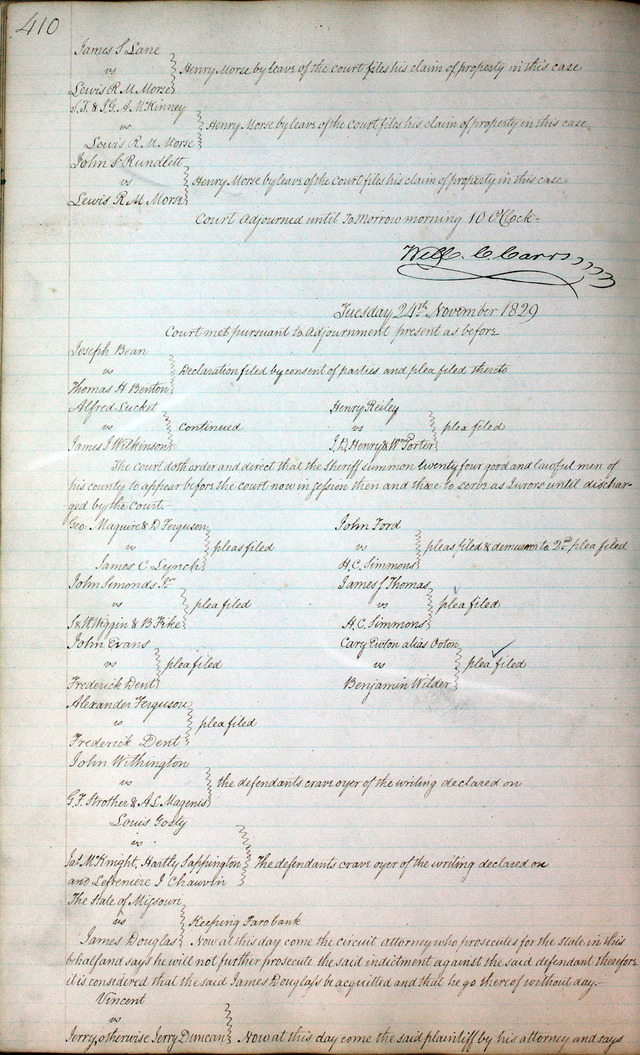 410
James S Lane
vs
Lewis R. M. Morse
Henry Morse by leave of the court files his claim of property in this case
S. T. & J. G. A. McKinney
vs
Lewis R. M. Morse
Henry Morse by leave of the Court files his claim of property in this case
John S. Rundlett
vs
Lewis R. M. Morse
Henry Morse by leave of the Court files his claim of property in this case
Court adjourned until Tomorrow morning 10 OClock-
Will. C. Carr
Tuesday 24th November 1829
Court met pursuant to Adjournment present as before
Joseph Bean
vs
Thomas H Benton
Declaration filed by consent of parties and plea filed thereto
Alfred Lucket
vs
James J Wilkinson
Continued
Henry Reiley
vs
J. D. Henry & Wm Porter
plea filed
The court doth order and direct that the Sheriff summon twenty four good and lawful men of
his county to appear before the court now in session then and there to serve as Jurors until dischar-
ged by the Court.-
Geo: Maguire & D Ferguson
vs
James C Lynch
pleas filed
John Ford
vs
H. C. Simmons
pleas filed & demurrer to 2nd plea filed
John Simonds Jr
vs
S & W Wiggin & B Fuke
plea filed
James J Thomas
vs
H. C. Simmons
plea filed
John Evans
vs
Frederick Dent
plea filed
Cary Ewton alias Ooton
vs
Benjamin Wilder
plea filed
Alexander Ferguson
vs
Frederick Dent
plea filed
John Withington
vs
G. F. Strother & A. L. Magenis
the defendants crave oyer of the writing declared on
Louis Gosly
vs
Jas McKnight, Hartly Sappington
and Lefreniere J Chauvin
The defendants crave oyer of the writing declared on
The State of Missouri
vs
Keeping Farobank
James Douglass Now at this day come the circuit attorney who prosecutes for the state in this
behalf and says he will not further prosecute the said indictment against the said defendant therefore
it is considered that the said James Douglass be acquitted and that he go thereof without day.-
Vincent
vs
Jerry, otherwise Jerry Duncan Now at this day come the said plaintiff by his attorney and says